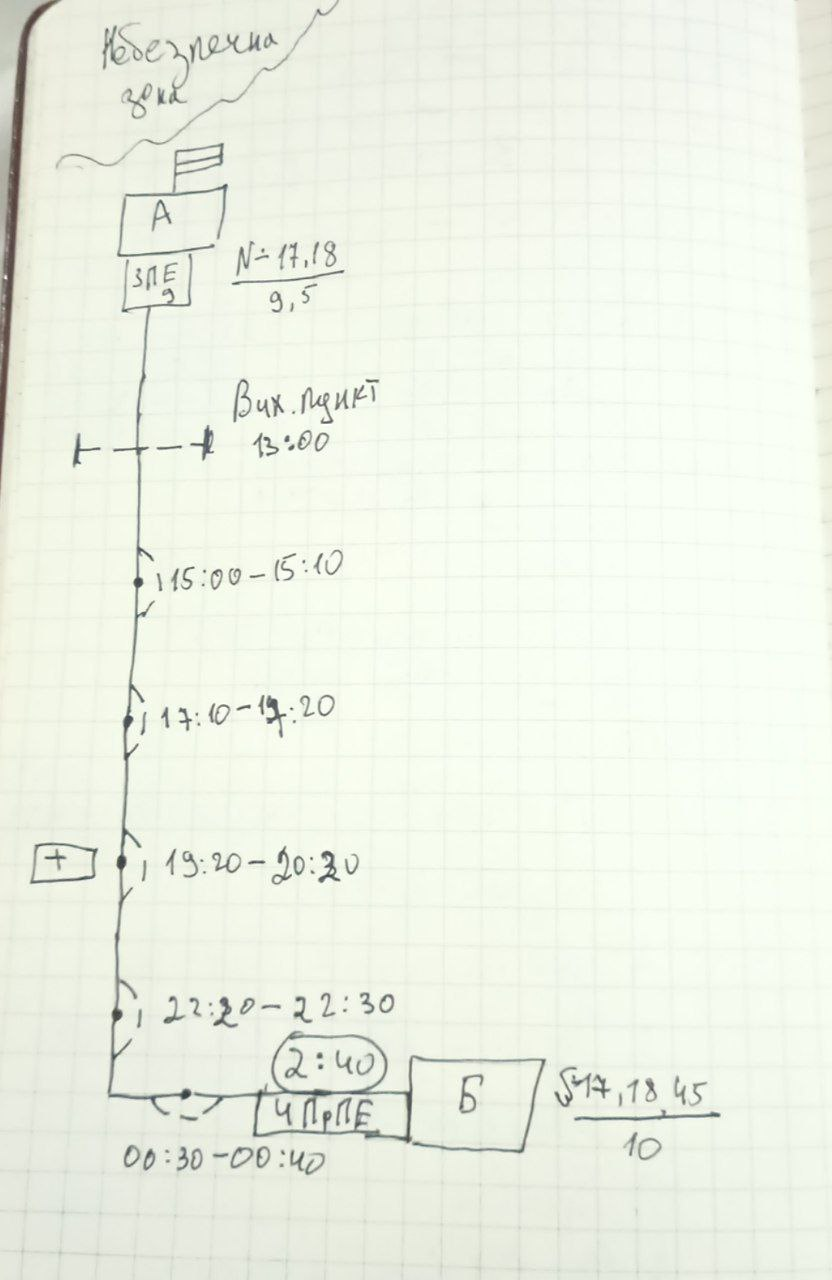 Небезпечна
зона
А
ЗПЕ
9
№ 17,18
9,5
Вих. пункт
13:00
15:00 – 15:10
17:10 – 17:20
+
19:20 – 20:20
22:20 – 22:30
2:40
4 ПрПЕ
Б
17, 18, 45
10
00:30 – 00:40